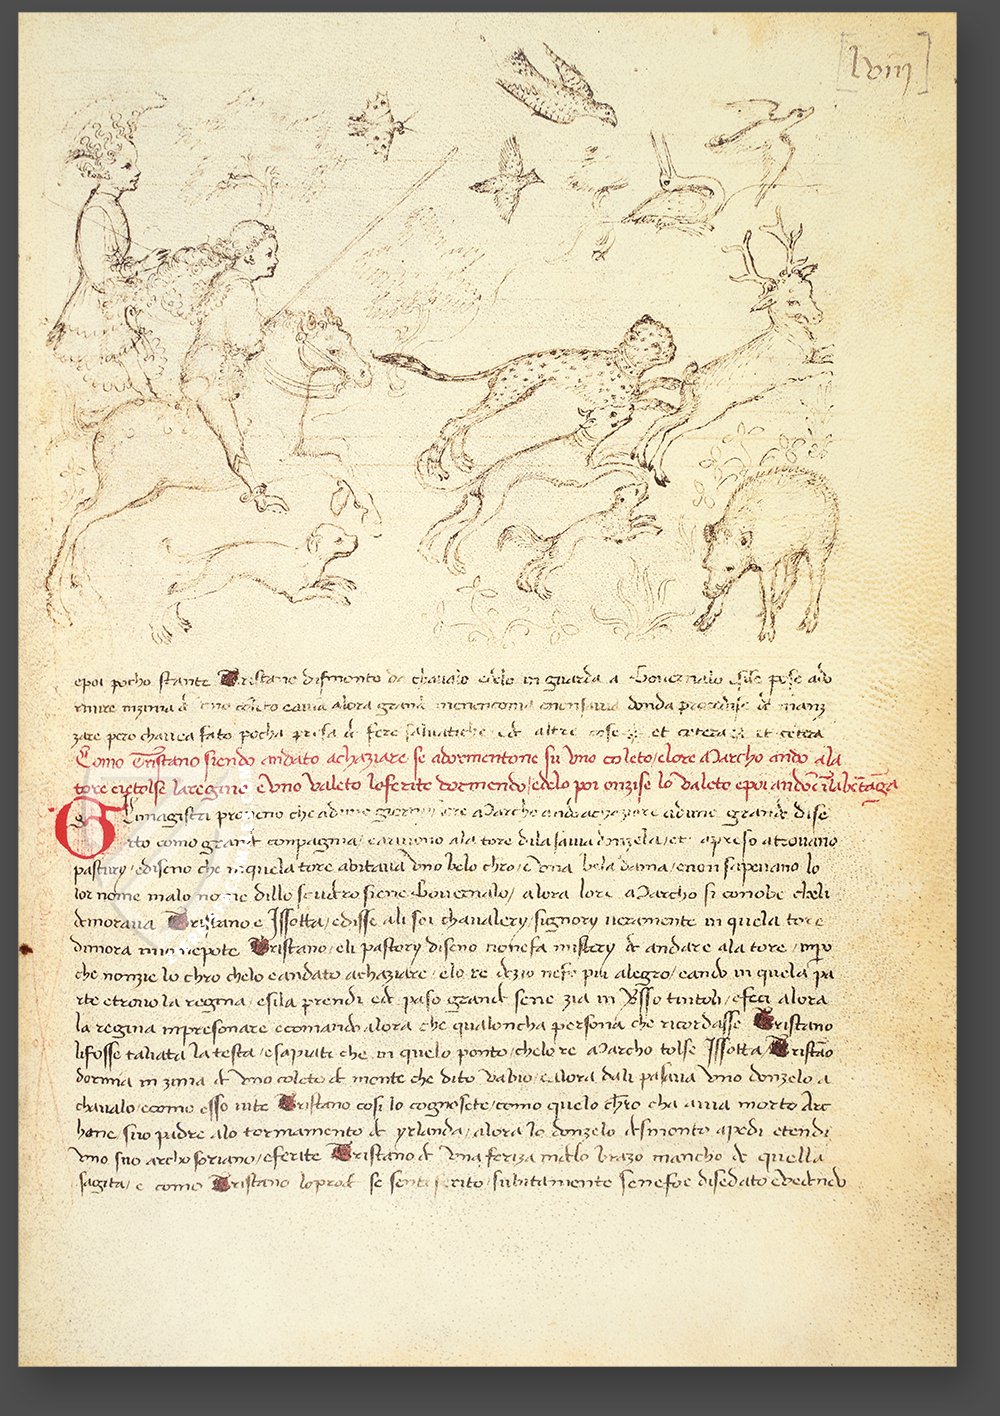 [lviii]
epoi pocho stante Tristano dismonto da chavalo edelo in guarda a Governalo esise pose ado
rmire inzima d uno coleto eavia alora grand menenconia donda procedise de manz
zare pero chaveva fato pocha presa de fere salvatiche e de altre cose et cetera et cetera
Como Tristano siendo andato achaziare se adormentone su uno coleto elore Marcho ando ala
tore eietolse laregine e uno valeto loferite dormendo edelo poi onzise lo valeto epoi ando
Gli magistri proveno che adune giorno lore Marcho ando achaziare adune grande dise
rto como grande compagnia earivono ala tore dila savia donzela et apreso atrovano
pastury ediseno che inquela tore abitava uno belo chro e una bela dama enon sapevano lo
lor nome malo nome dillo scudro siene Governalo alora lore Marcho si conobe cheli
demorava Tristano e Issotta edisse ali soi chavalery signory veramente in quela tore
dimora mio nepote Tristano eli pastory diseno nonefa mistery de andare ala tore impo
che nonzie lo chro chelo eandato achaziare elo re dezio nefo piu alegro eando in quela pa
rte etrovo la regina esila prendi ede paso grande sene zia in tintoli efeci alora
la regina inpresonare ecomando alora che qualoncha persona che ricordasse Tristano
lifosse taliata la testa esapiati che in quelo ponto chelo re Marcho tolse Issotta Tristão
dormia in zima de uno coleto de monte che dito vabio ealora dali pasava uno donzelo a
chavalo ecomo esso vite Tristano cosi lo cognosete como quelo chro cha avia morto Arc
hone suo padre alo tormamento de yrlanda alora lo donzelo desmonto apedi etendi
uno suo archo soriano eferite Tristano de una feriza indelo brazo mancho de quella
sagita e como Tristano loprode se senti ferito subitamente senefoe disedato evedendo